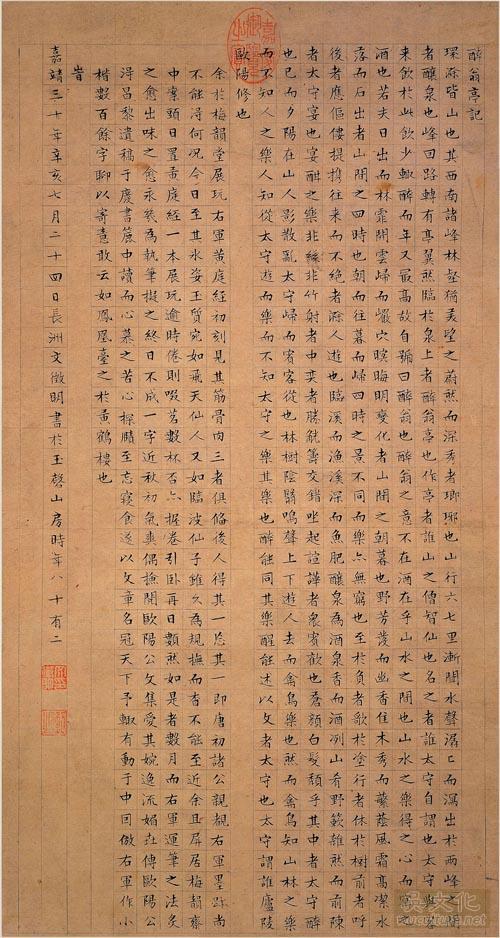 醉翁亭記
環滁皆山也其西南諸峰林壑猶美望之蔚然而深秀者瑯琊也山行六七里漸聞水聲潺〻而瀉出於兩峰之間
者釀泉也峰回路轉有亭翼然臨於泉上者醉翁亭也作亭者誰山之僧智仙也名之者誰太守自謂也太守與客
来飲於此飲少輒醉而年又最高故自號曰醉翁也醉翁之意不在酒在乎山水之間也山水之樂得之心而寓之
酒也若夫日出而林霏開雲歸而巖穴暝晦明變化者山間之朝暮也野芳發而幽香佳木秀而蘩蔭風霜高潔水
落而石出者山間之四時也朝而往暮而歸四時之景不同而樂亦無窮也至於負者歌於塗行者休於樹前者呼
後者應傴僂提攜往来而不絕者滁人遊也臨溪而漁溪深而魚肥釀泉為酒泉香而酒冽山肴野蔌雜然而前陳
者太守宴也宴酣之樂非絲非竹射者中奕者勝觥籌交錯坐起諠譁者衆賓歡也蒼顏白髮頹乎其中者太守醉
也已而夕陽在山人影散亂太守歸而賓客從也林樹陰翳鳴聲上下遊人去而禽鳥樂也然而禽鳥知山林之樂
而不知人之樂人知從太守遊而樂而不知太守之樂其樂也醉能同其樂醒能述以文者太守也太守謂誰廬陵
歐陽修也
余於梅韻堂展玩右軍黃庭經初刻見其筋骨肉三者俱備後人得其一忘其一即唐初諸公親覩右軍墨跡尚
不能得何況今日至其水姿玉質宛如飛天仙人又如臨波仙子雖久為規撫而杳不能至近余且屏居梅韻齋
中案頭日置黃庭經一本展玩逾時倦則啜茗數杯否亦握卷引臥再日數然如是者數月而右軍運筆之法炙
之愈出味之愈永矣為執筆擬之終日不成一字近秋初氣爽偶撿開歐陽公文集愛其婉逸流媚世傳歐陽公
得昌黎遺稿于廢書簏中讀而心慕之苦心探賾至忘寢食遂以文章名冠天下予輒有動于中因倣右軍作小
楷數百餘字聊以寄意敢云如鳳凰臺之於黃鶴樓也
旹
嘉靖三十年辛亥七月二十四日長洲文徵明書於玉磬山房時年八十有二
吳文化